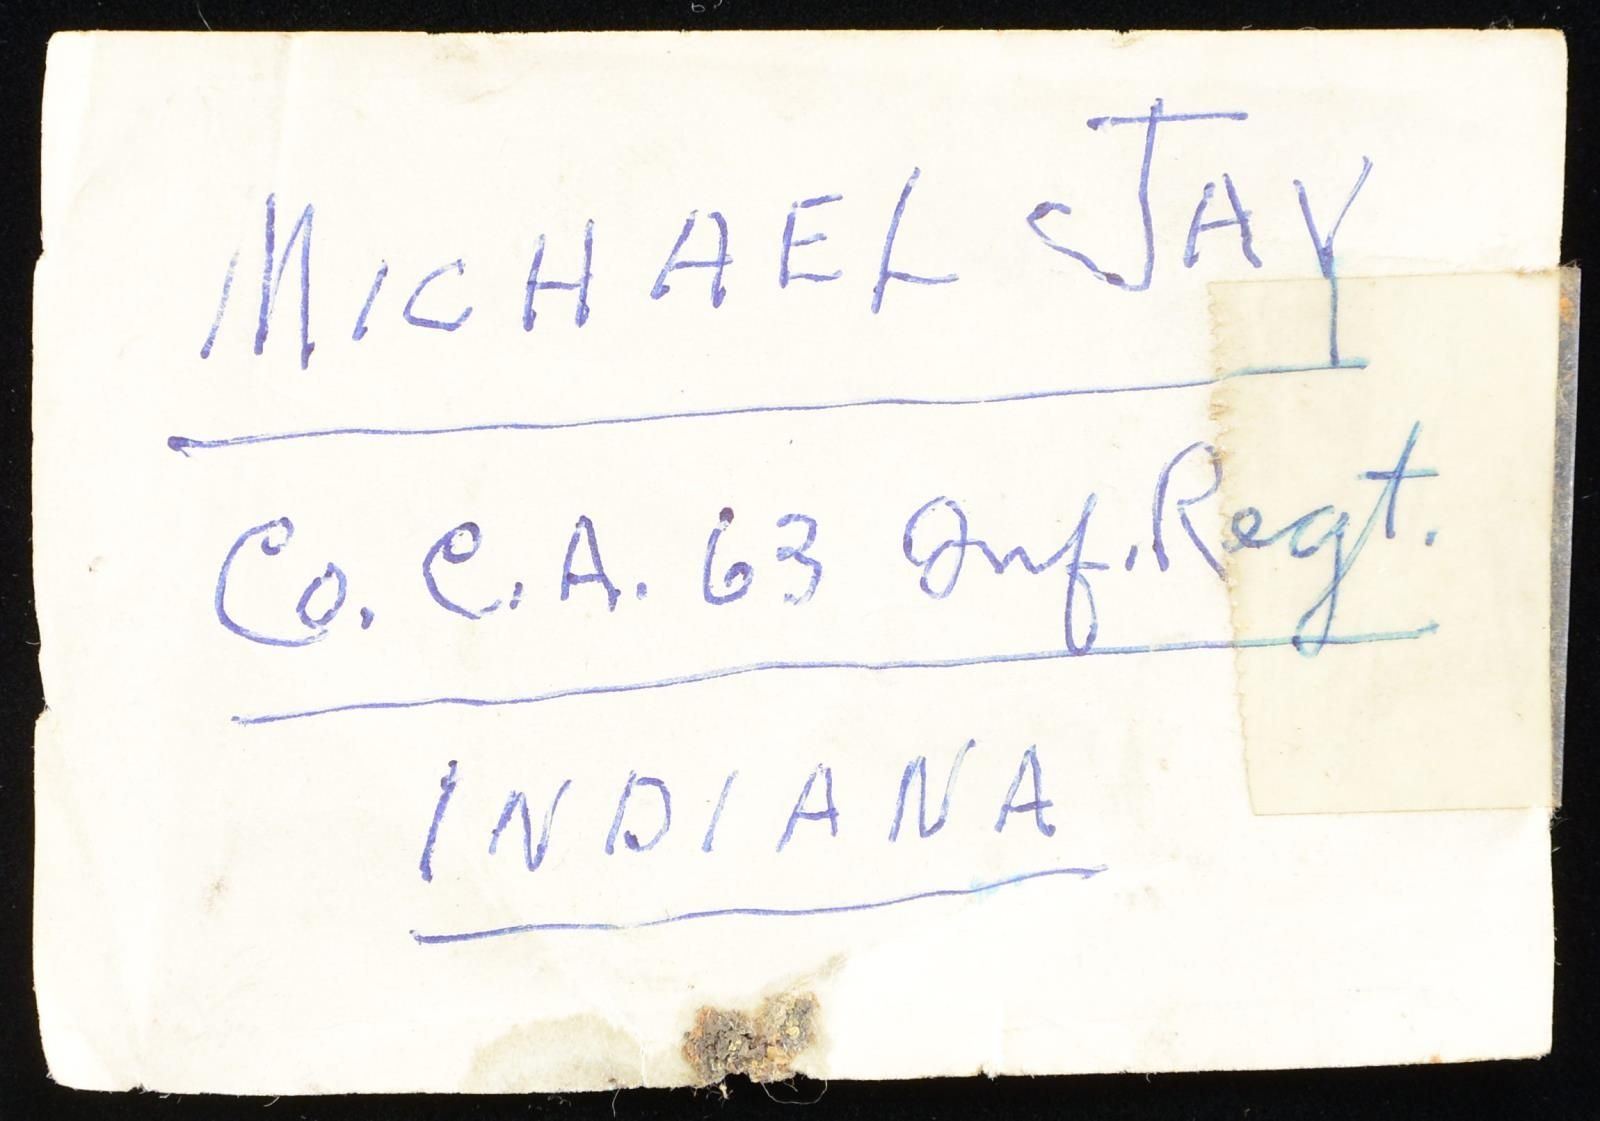 MICHAEL JAY
Co. C.A. 63 Inf. Regt.
INDIANA